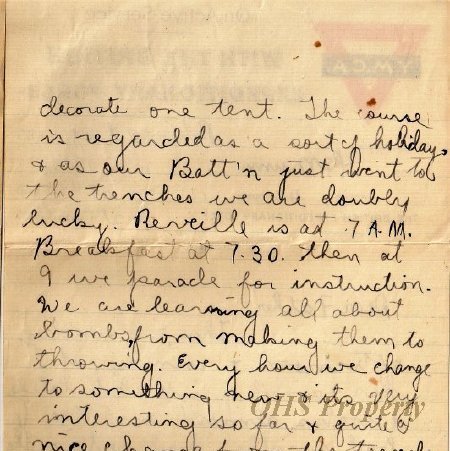 On Active Service
WITH THE
Y.M.C.A.
decorate one tent. The course
is regarded as a sort of holiday
& as our Batt'n just went to
the trenches we are doubly
lucky. Reveille is at 7 A.M.
Breakfast at 7.30. Then at
9 we parade for instruction.
We are learning all about
bombs, from making them to
throwing. Every hour we change
to something new & its very
interesting so far & quite a
nice change from the
GHS Property